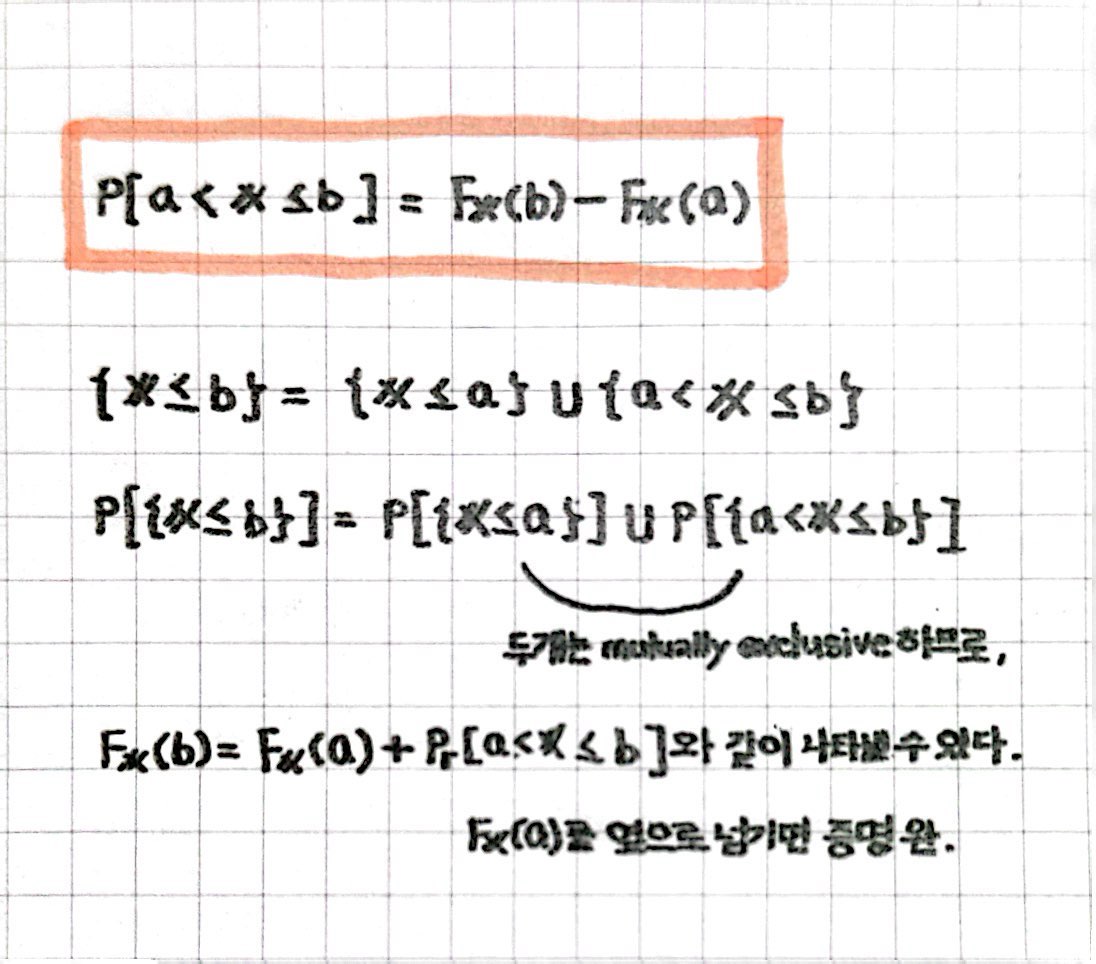 P[a < X ≤ b] = Fx(b) - Fx(a)
{X ≤ b} = {X ≤ a} ∪ {a < X ≤ b}
P[{X ≤ b}] = P[{X ≤ a}] ∪ P[{a < X ≤ b}]
두개는 mutually exclusive 하므로,
Fx(b) = Fx(a) + Pr[a < X ≤ b]와 같이 나타낼 수 있다.
Fx(a)를 옆으로 넘기면 증명 완.